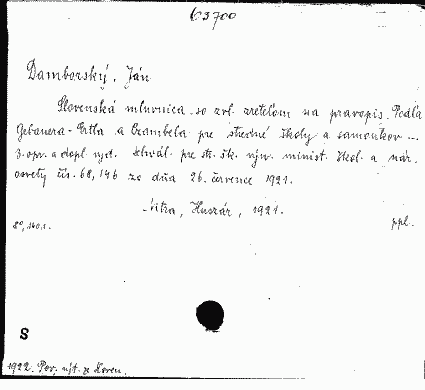 63700
Damborský, Ján
Slovenská mluvnica so zvl. zreteľom na pravopis. Podľa
Gebauera-Ertla a Czambela pre stredné školy a samoukov ...
3. opr. a dopl. vyd. Schvál. pre str. šk. výn. minist. škol. a nár.
osvety čís. 68,146 zo dňa 26. července 1921.
Nitra, Huszár, 1921.
8°, 140 s. ppl.
S
1922. Pov. výt. z Koren.